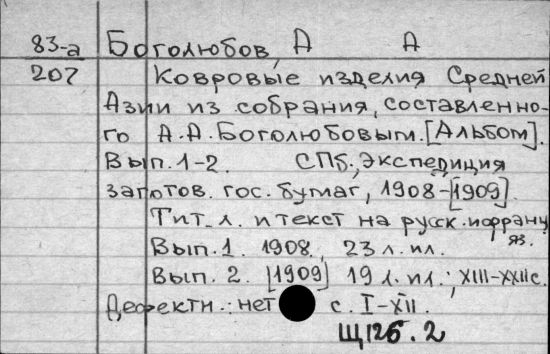 83-а Боголюбов, А А
207 Ковровые изделия Средней
Азии из собрания, составленно-
го А.А.Боголюбовым.[Альбом].
Вып.1-2. СПб, Экспедиция
заготов. гос. бумаг, 1908-[1909].
Тит. л. и текст на русск. и франц
яз.
Вып.1. 1908. 23 л. ил.
Вып. 2. [1909] 19 л. ил.; XIII-XXII с.
Дефектн.: нет с. I-XII.
Щ126.2